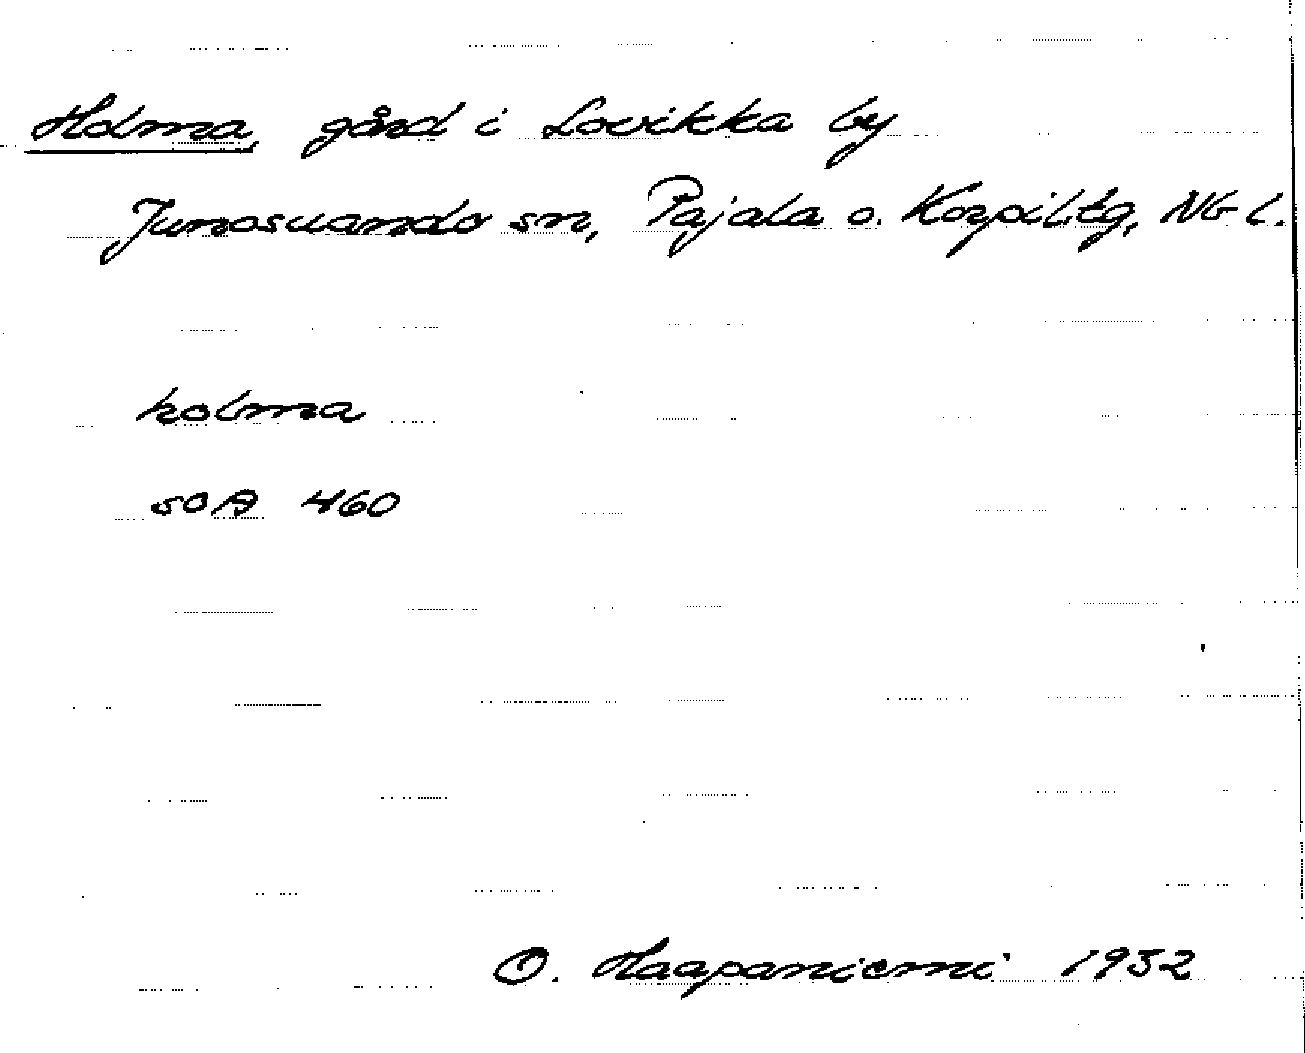 Holma, gård i Lovikka by
Junosuando sn, Pajala o. Korpil. tg, NG l.
holma
SOA 460
O. Haapaniemi 1932